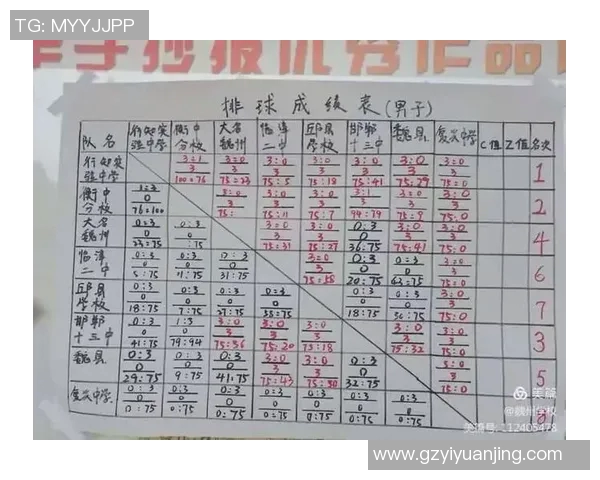 TG: MYYJJPP
手抄报优秀作品
排球成绩表(男子)
队名 行知实验中学 衡中分校 大名魏州 临漳二中 邱县学校 邯郸十三中 魏县 复兴中学 C值 Z值 名次
行知实验中学 3:1 3 100:76 3:0 3 75:23 3:0 3 75:5 3:0 3 75:18 3:0 3 75:41 3:0 3 75:29 3:0 3 75:0 1
衡中分校 1:3 0 76:100 3:0 3 75: 3:0 3 75:11 3:0 3 75:7 3:1 3 94:79 3:0 3 75:9 3:0 3 75:0 2
大名魏州 0:3 0 23:75 0:3 0 :75 3:0 3 75:31 3:0 3 75:27 0:3 0 36:75 3:0 3 75:41 3:0 3 75:0 4
临漳二中 0:3 0 5:75 0:3 0 11:75 0:3 0 31:75 3:0 3 0:3 0 20:75 0:3 0 43:75 3:0 3 75:0 6
邱县学校 0:3 0 18:75 0:3 0 7:75 0:3 0 27:75 0:3 0 0:3 0 18:75 0:3 0 3:0 3 75:0 7
邯郸十三中 0:3 0 41:75 1:3 0 79:94 3:0 3 75:36 3:0 3 75:20 3:0 3 75:18 3:0 3 75:32 3:0 3 75:0 3
魏县 0:3 0 29:75 0:3 0 9:75 0:3 0 41:75 3:0 3 75:43 3:0 3 0:3 0 32:75 3:0 3 75:0 5
复兴中学 0:3 0 0:75 0:3 0 0:75 0:3 0 0:75 0:3 0 0:75 0:3 0 0:75 0:3 0 0:75 0:3 0 0:75 8
美篇
@魏州学校
美篇号:112405478
www.gzyiyuanjing.com